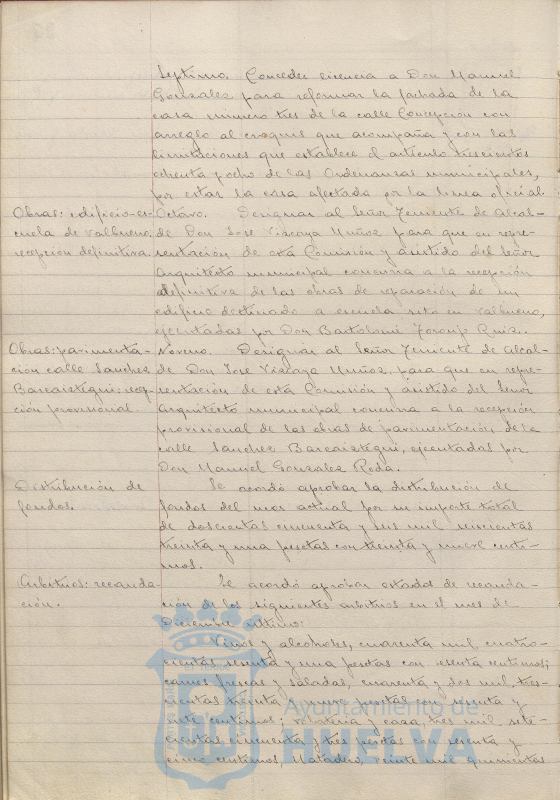 Septimo. Conceder licencia a Don Manuel
Gonzalez para reformar la fachada de la
casa numero tres de la calle Concepcion con
arreglo al croquis que acompaña y con las
limitaciones que establece el articulo trescientos
ochenta y ocho de las Ordenanzas municipales,
por estar la casa afectada por la linea oficial.
Obras: edificio-es-
cuela de Valbueno.
recepcion definitiva.
Octavo. Designar al Señor Teniente de Alcal-
de Don Jose Vizcaya Muñoz para que en repre-
sentación de esta Comisión y asistido del Señor
Arquitecto municipal concurra a la recepción
definitiva de las obras de reparación de un
edificio destinado a escuela sito en Valbueno,
ejecutadas por Don Bartolomé Ruiz.
Obras: pavimenta-
cion calle Sanchez
Barcaiztegui: recep-
ción provisional.
Noveno. Designar al Señor Teniente de Alcal-
de Don Jose Vizcaya Muñoz, para que en repre-
sentación de esta Comisión y asistido del Señor
Arquitecto municipal concurra a la recepción
provisional de las obras de pavimentación de la
calle Sanchez Barcaiztegui, ejecutadas por
Don Manuel Gonzalez Reda.
Distribución de
fondos.
Se acordó aprobar la distribución de
fondos del mes actual por su importe total
de doscientas cincuenta y seis mil seiscientas
treinta y una pesetas con treinta y nueve centi-
mos.
Arbitrios: recauda-
ción.
Se acordó aprobar estados de recauda-
ción de los siguientes arbitrios en el mes de
Diciembre ultimo:
Vinos y alcoholes, cuarenta mil, cuatro-
cientas sesenta y una pesetas con sesenta centimos;
carnes frescas y saladas, cuarenta y dos mil, tres-
cientas treinta y nueve pesetas con setenta y
siete centimos; volateria y caza, tres mil sete-
cientas cincuenta y tres pesetas con sesenta y
cinco centimos, Matadero, veinte mil quinientas
Ayuntamiento de
HUELVA